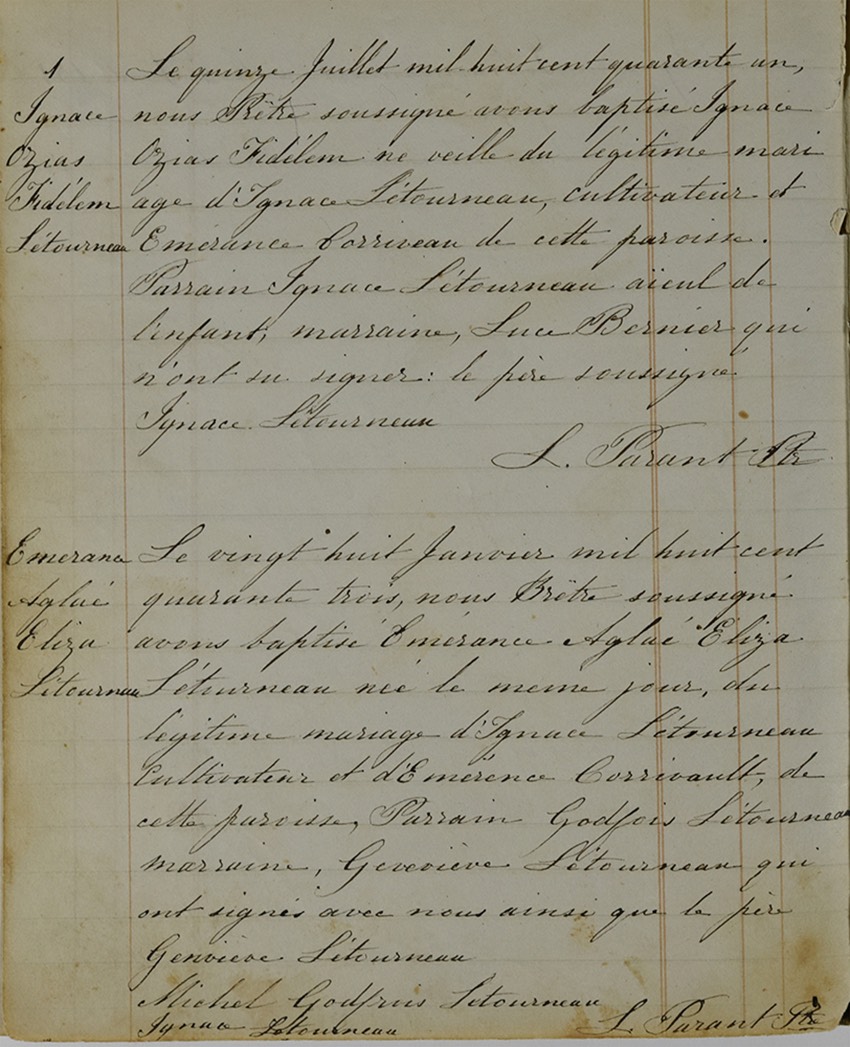 1
Ignace
Ozias
Fidélem
Létourneau
Le quinze Juillet mil huit cent quarante un,
nous Prêtre soussigné avons baptisé Ignace
Ozias Fidélem ne veille du légitime mari
age d'Ignace Létourneau, cultivateur et
Emérance Corriveau de cette paroisse.
Parrain Ignace Létourneau aieul de
l'enfant, marraine, Luce Bernier qui
n'ont su signer: le père soussigné
Ignace Létourneau
L. Parant Ptr
Emerance
Aglaé
Eliza
Létourneau
Le vingt huit Janvier mil huit cent
quarante trois, nous Prêtre soussigné
avons baptisé Emérance Aglaé Eliza
Létourneau née le meme jour, du
légitime mariage d'Ignace Létourneau
Cultivateur et d'Emérence Corrivault, de
cette paroisse, Parrain Godfois Létourneau
marraine, Geveviève Létourneau qui
ont signés avec nous ainsi que le père
Genviève Létourneau
Michel Godfrois Letourneau
Ignace Létourneau
L. Parant Ptre